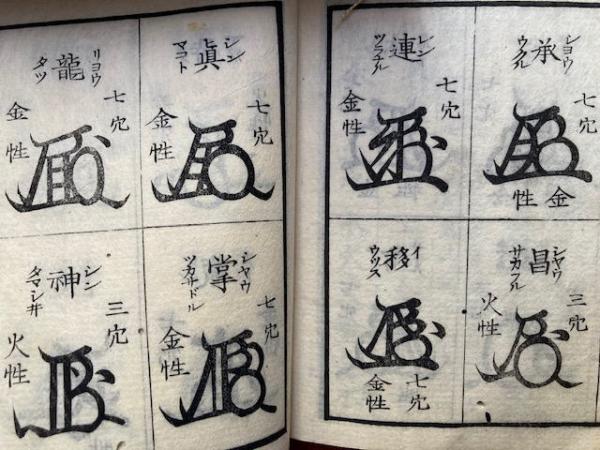 シヨウ
承
ウクル
七穴
金性
レン
連
ツラナル
七穴
金性
シヤウ
昌
三穴
火性
イ
移
ウツス
七穴
金性
シン
眞
マコト
七穴
金性
リヨウ
龍
タツ
七穴
金性
シヤウ
掌
ツカサドル
七穴
金性
シン
神
タマシ井
三穴
火性